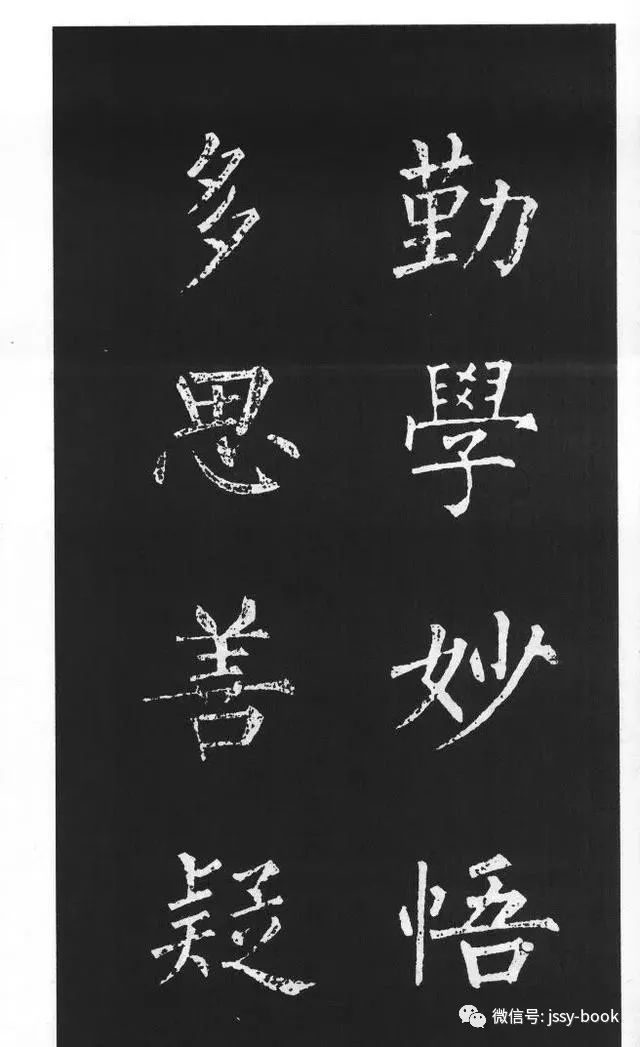 勤學妙悟
多思善疑
微信号: jssy-book